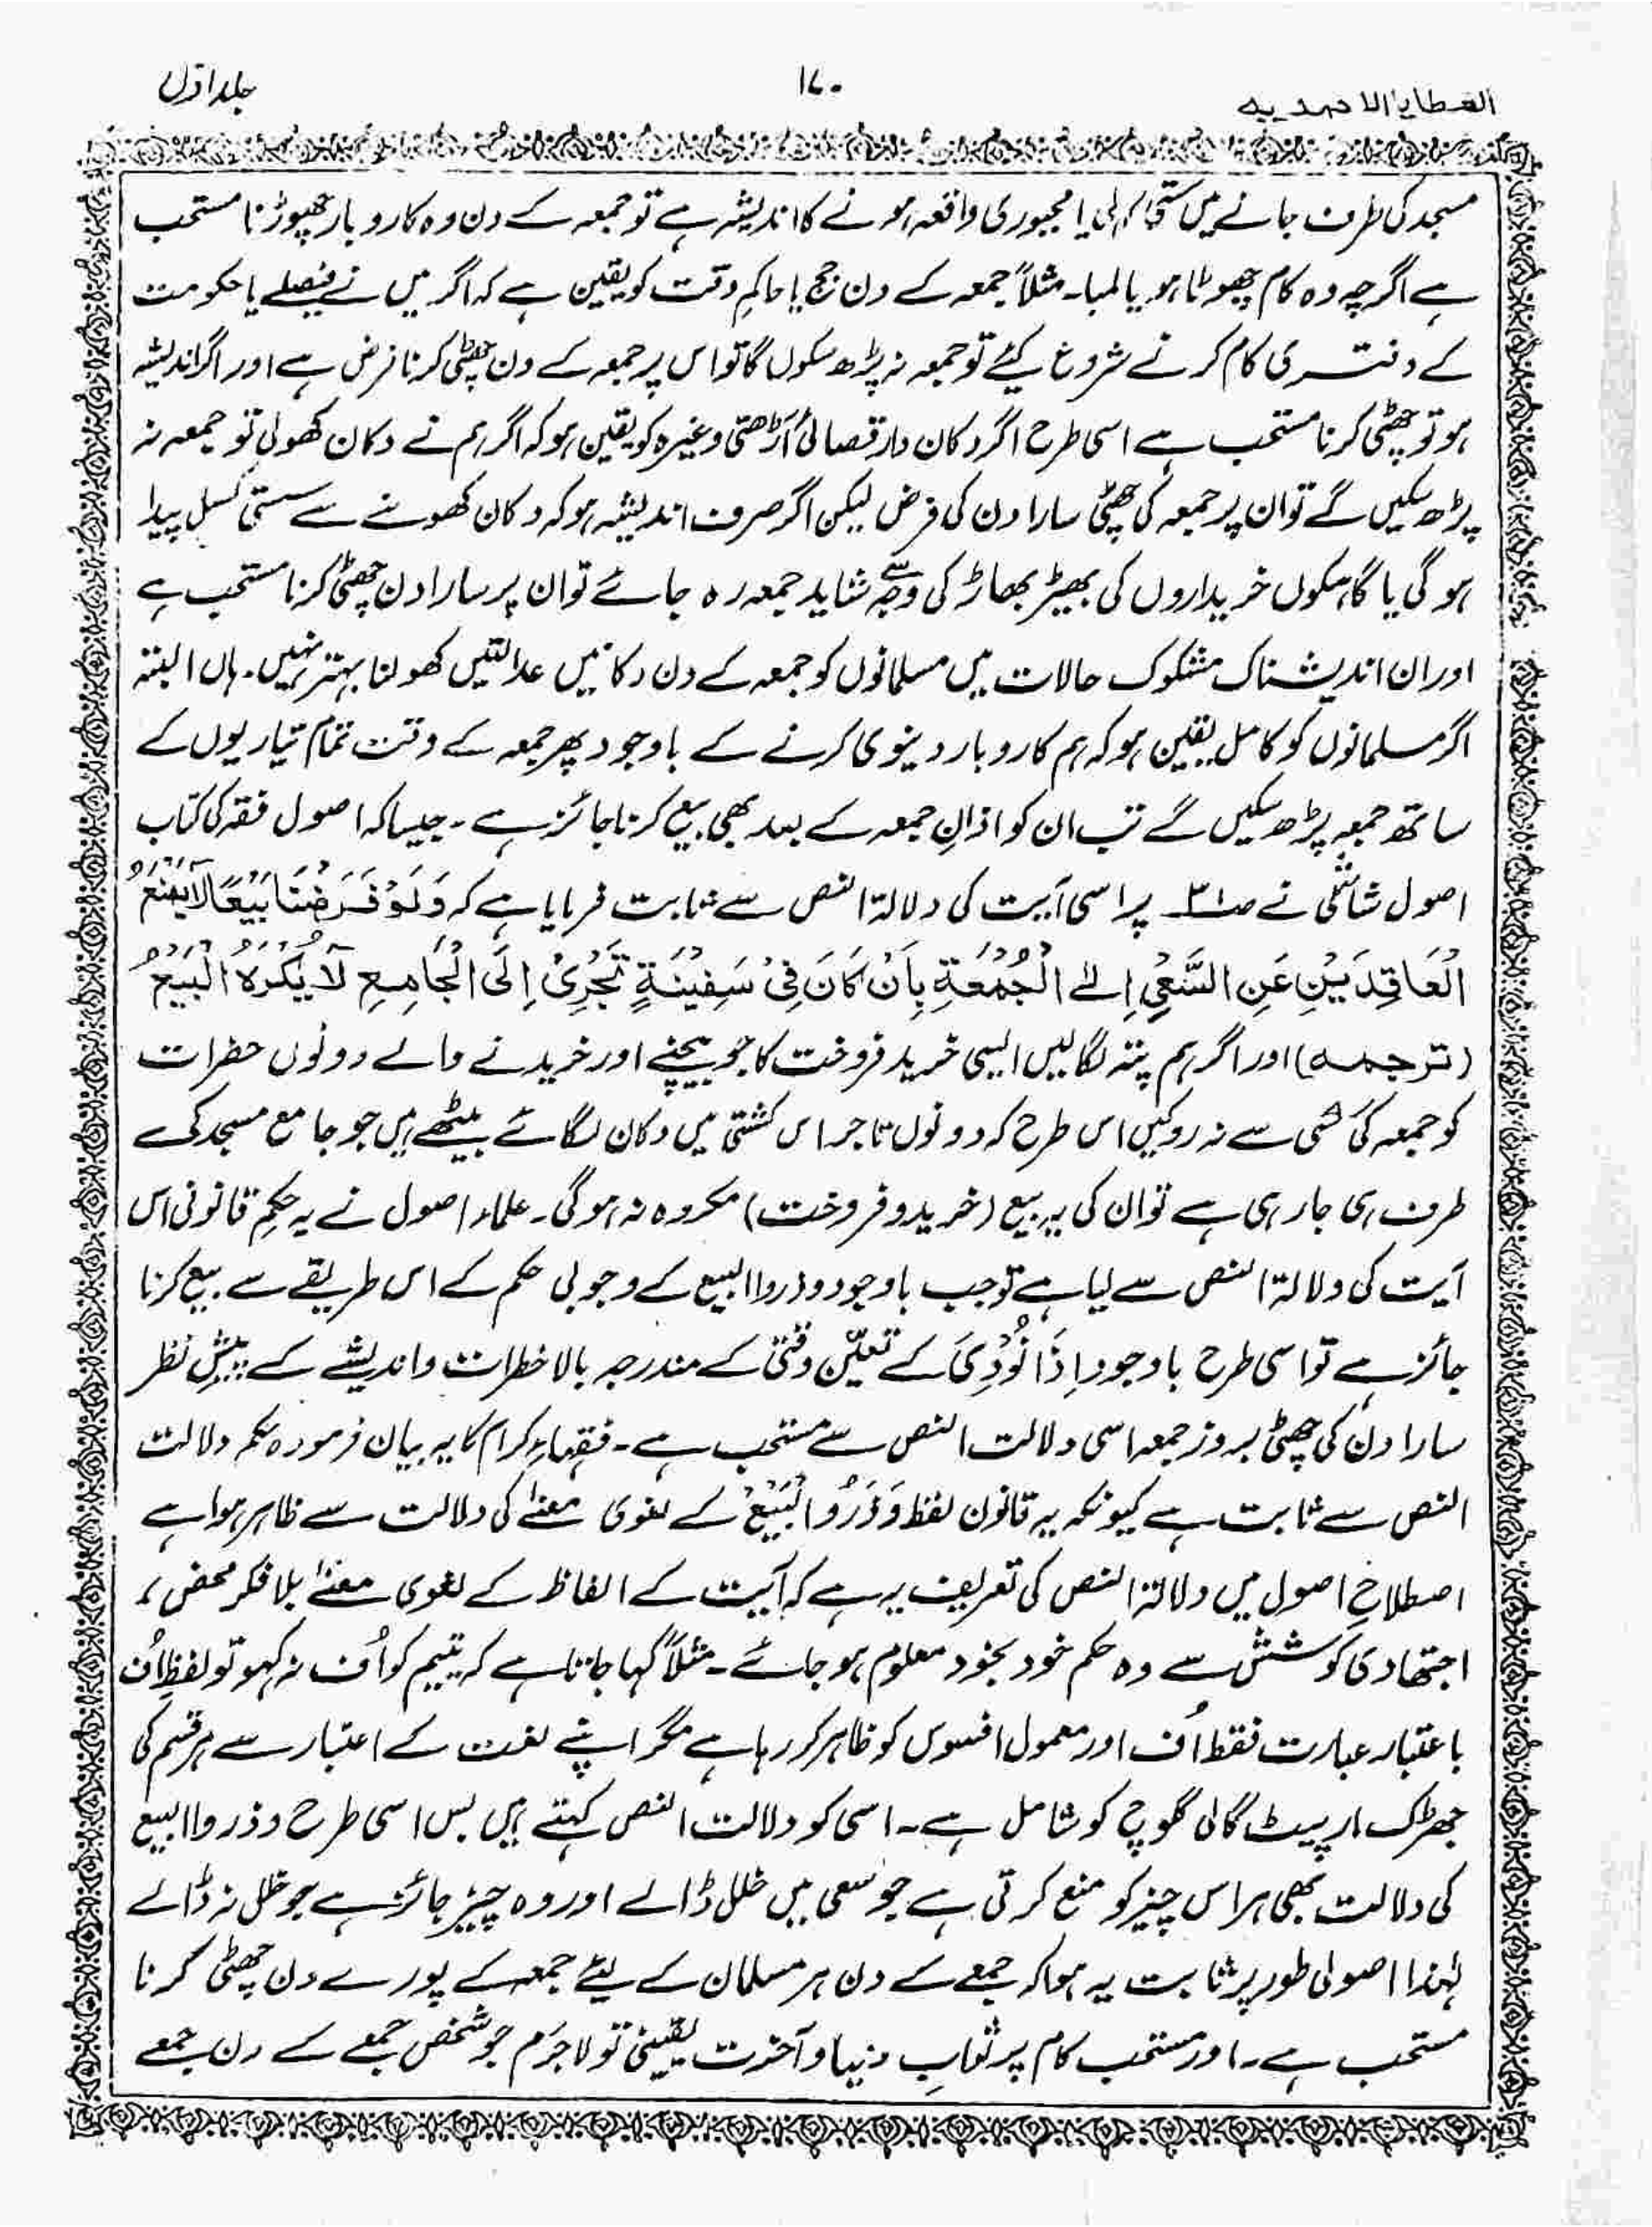 العطایا الاحمدیہ
۱۷۰
جلد اوّل
مسجد کی طرف جانے میں سستی کاہلی یا مجبوری واقعہ ہونے کا اندیشہ ہے تو جمعہ کے دن وہ کاروبار چھوڑنا مستحب
ہے اگرچہ وہ کام چھوٹا ہو یا لمبا۔ مثلاً جمعہ کے دن جج یا حاکمِ وقت کو یقین ہے کہ اگر میں نے فیصلے یا حکومت
کے دفتری کام کرنے شروع کیئے تو جمعہ نہ پڑھ سکوں گا تو اس پر جمعہ کے دن چھٹی کرنا فرض ہے اور اگر اندیشہ
ہو تو چھٹی کرنا مستحب ہے اسی طرح اگر دکان دار قصائی آڑھتی وغیرہ کو یقین ہو کہ اگر ہم نے دکان کھولی تو جمعہ نہ
پڑھ سکیں گے تو ان پر جمعہ کی چھٹی سارا دن کی فرض لیکن اگر صرف اندیشہ ہو کہ دکان کھولنے سے سستی کسل پیدا
ہو گی یا گاہکوں خریداروں کی بھیڑ بھاڑ کی وجہ سے شاید جمعہ رہ جائے تو ان پر سارا دن چھٹی کرنا مستحب ہے
اور ان اندیشناک مشکوک حالات میں مسلمانوں کو جمعہ کے دن دکانیں عدالتیں کھولنا بہتر نہیں۔ ہاں البتہ
اگر مسلمانوں کو کامل یقین ہو کہ ہم کاروبار دینوی کرنے کے باوجود پھر جمعہ کے وقت تمام تیاریوں کے
ساتھ جمعہ پڑھ سکیں گے تب ان کو اذانِ جمعہ کے بعد بھی بیع کرنا جائز ہے۔ جیسا کہ اصول فقہ کی کتاب
اصول شاشی نے صـ۳۱ پر اسی آیت کی دلالۃ النص سے ثابت فرمایا ہے کہ وَلَوْ فَرَضْنَا بَيْعًا لَا يَمْنَعُ
الْعَاقِدَيْنِ عَنِ السَّعْيِ اِلٰی الْجُمُعَةِ بِاَنْ كَانَ فِیْ سَفِيْنَةٍ تَجْرِیْ اِلَی الْجَامِعِ لَا يَكْرَهُ الْبَيْعُ
(ترجمہ) اور اگر ہم پتہ لگا لیں ایسی خرید فروخت کا جو بیچنے اور خریدنے والے دونوں حضرات
کو جمعہ کی سَعی سے نہ روکیں اس طرح کہ دونوں تاجر اس کشتی میں دکان لگائے بیٹھے ہیں جو جامع مسجد کی
طرف ہی جا رہی ہے تو ان کی یہ بیع (خرید و فروخت) مکروہ نہ ہو گی۔ علماء اصول نے یہ حکمِ قانونی اس
آیت کی دلالۃ النص سے لیا ہے تو جب باوجود وذروا البیع کے وجوبی حکم کے اس طریقے سے بیع کرنا
جائز ہے تو اسی طرح باوجود اِذَا نُوْدِیَ کے تعیّن وقتی کے مندرجہ بالا خطرات و اندیشے کے پیشِ نظر
سارا دن کی چھٹی بروز جمعہ اسی دلالت النص سے مستحب ہے۔ فقہاءِ کرام کا یہ بیان فرمودہ حکم دلالت
النص سے ثابت ہے کیونکہ یہ قانون لفظ وَذَرُوا الْبَيْعَ کے لغوی معنٰے کی دلالت سے ظاہر ہوا ہے
اصطلاحِ اصول میں دلالۃ النص کی تعریف یہ ہے کہ آیت کے الفاظ کے لغوی معنٰے بلا فکر محض،
اجتھادی کوشش سے وہ حکم خود بخود معلوم ہو جائے۔ مثلاً کہا جاتا ہے کہ یتیم کو اُف نہ کہو تو لفظِ اُف
باعتبار عبارت فقط اُف اور معمول افسوس کو ظاہر کر رہا ہے مگر اپنے لغت کے اعتبار سے ہر قسم کی
جھڑک مار پیٹ گالی گلوچ کو شامل ہے۔ اسی کو دلالت النص کہتے ہیں بس اسی طرح وذروا البیع
کی دلالت بھی ہر اس چیز کو منع کرتی ہے جو سعی میں خلل ڈالے اور وہ چیز جائز ہے جو خلل نہ ڈالے
لہٰذا اصولی طور پر ثابت یہ ہوا کہ جمعے کے دن ہر مسلمان کے لیئے جمعہ کے پورے دن چھٹی کرنا
مستحب ہے۔ اور مستحب کام پر ثوابِ دنیا و آخرت یقینی تو لا جَرَم جو شخص جمعے کے دن جمعے